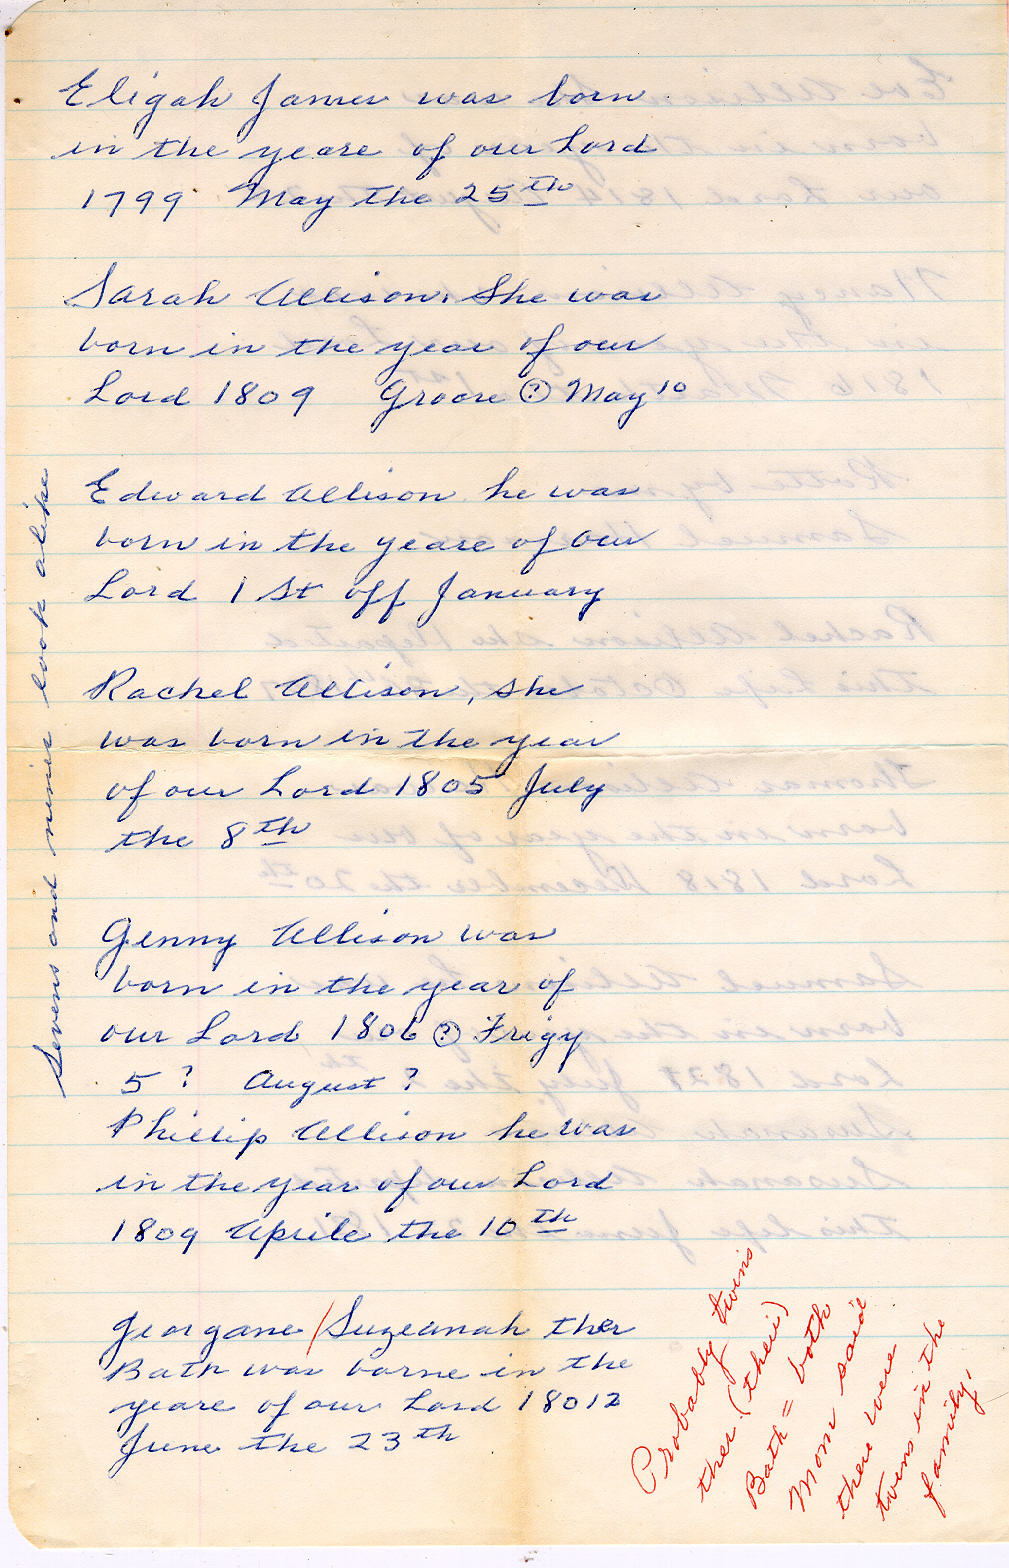 Eligah James was born
in the yeare of our Lord
1799 May the 25th
Sarah Allison. She was
born in the year of our
Lord 1809 Groore ? May 10
Edward Allison he was
born in the yeare of our
Lord 1 St off January
Rachel Allison, she
was born in the year
of our Lord 1805 July
the 8th
Genny Allison was
born in the year of
our Lord 1806 ? Frigy
5 ? August ?
Phillip Allison he was
in the year of our Lord
1809 Aprile the 10th
Georgane / Suzeanah ther
Bath was borne in the
yeare of our Lord 18012
June the 23th
Sevens and nines look alike
Probably twins
ther (their)
Bath = both
Mom said
there were
twins in the
family.